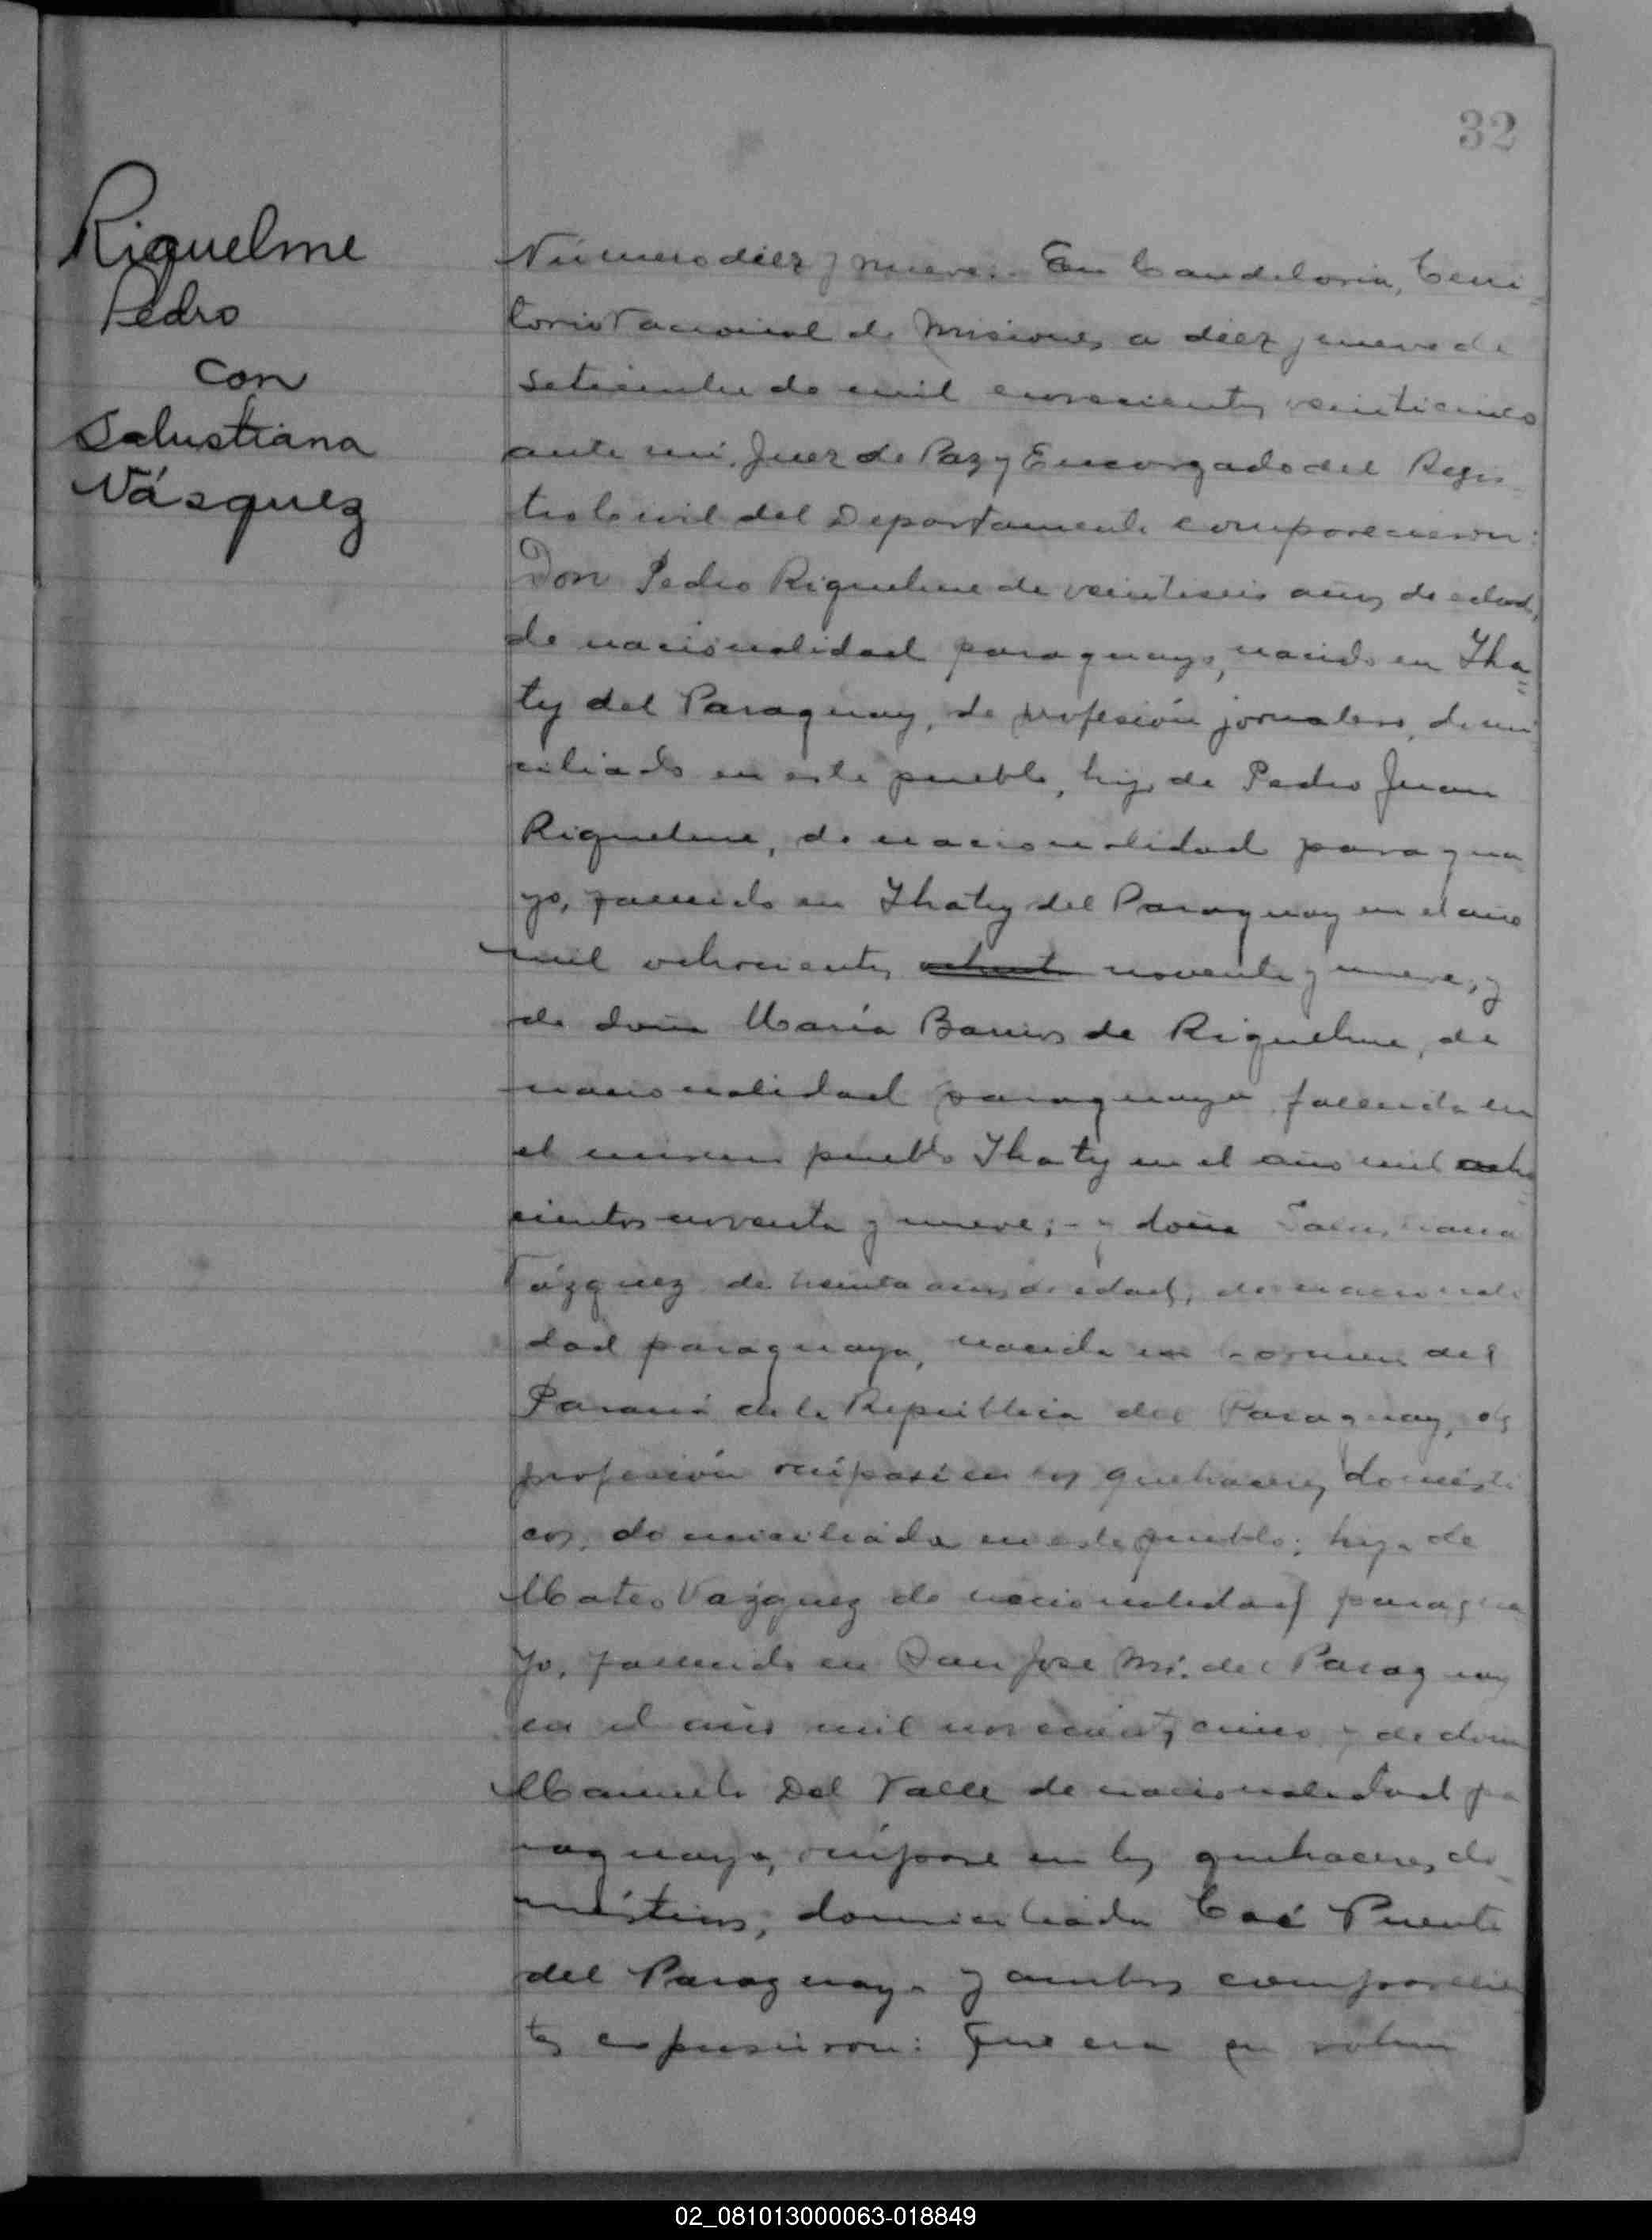 32
Riquelme
Pedro
con
Salustiana
Vásquez
Número diez y nueve.- En Candelaria, Terri=
torio Nacional de Misiones, a diez y nueve de
setiembre de mil novecientos veinticinco
ante mí, Juez de Paz y Encargado del Regis-
tro Civil del Departamento comparecieron:
Don Pedro Riquelme de veintiseis años de edad,
de nacionalidad paraguayo, nacido en Yha=
ty del Paraguay, de profesión jornalero, domi
ciliado en este pueblo, hijo de Pedro Juan
Riquelme, de nacionalidad paragua
yo, fallecido en Yhaty del Paraguay en el año
mil ochocientos ochenta noventa y nueve, y
de doña María Barrios de Riquelme, de
nacionalidad paraguaya fallecida en
el mismo pueblo Yhaty en el año mil ocho=
cientos noventa y nueve; - y doña Salustiana
Vázquez de treinta años de edad, de nacionali
dad paraguaya, nacida en Carmen del
Paraná de la República del Paraguay, de
profesión ocúpase en los quehaceres domésti
cos, domiciliada en este pueblo; hija de
Mateo Vázquez de nacionalidad paragua
yo, fallecido en San José Mí. del Paraguay
en el año mil novecientos cinco y de doña
Manuela Del Valle de nacionalidad pa
raguaya, ocúpase en los quehaceres do
mésticos, domiciliada Caé Puente
del Paraguay.- y ambos comparecien
tes expusieron: Que era su volun
02_081013000063-018849